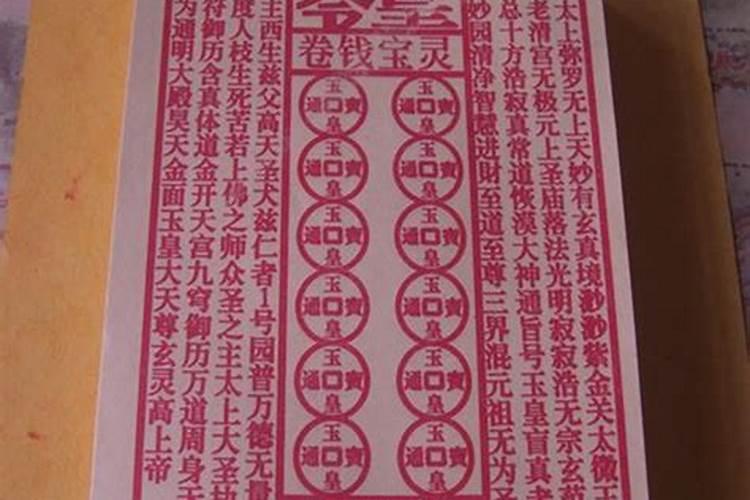 太上弥罗无上天妙有玄真境渺渺紫金关太微玉
老清宫无极元上圣庙落法光明寂寂浩无宗玄
总十方浩寂真常道恢漠大神通旨号玉皇盲真
妙园清净智慧进財至道至尊三界混元祖无为
皇令
灵宝钱卷
玉皇通寶
玉皇通寶
玉皇通寶
玉皇通寶
玉皇通寶
玉皇通寶
玉皇通寶
玉皇通寶
玉皇通寶
玉皇通寶
玉皇通寶
玉皇通寶
主西生兹父高天圣犬兹仁者1号园普万德无量
度人枝生死苦若上佛之师众圣之主太上大圣
符御历含真体道金开天宫九穹御历万道周身
为通明大殿昊天金面玉皇大天尊玄灵高上帝